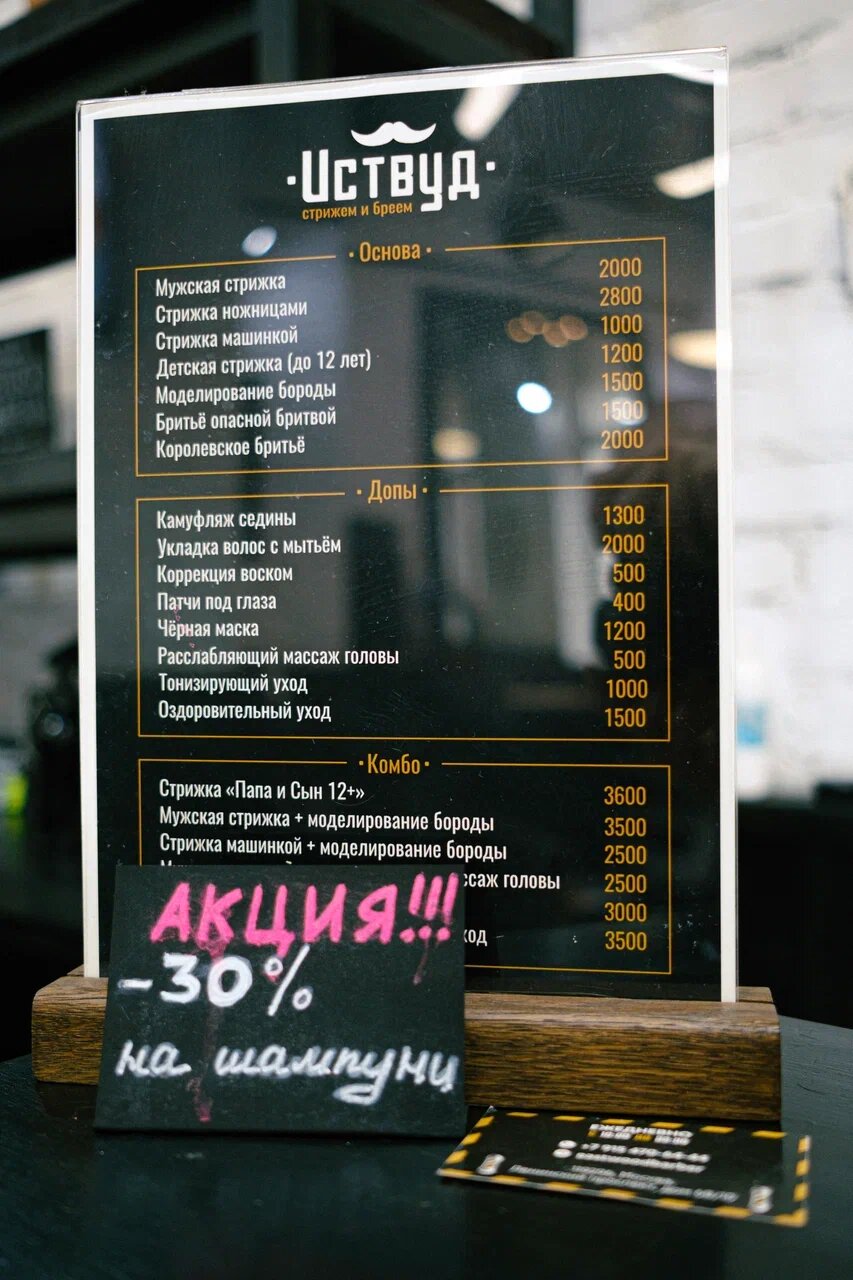 Иствуд
стрижем и бреем
Основа
Мужская стрижка 2000
Стрижка ножницами 2800
Стрижка машинкой 1000
Детская стрижка (до 12 лет) 1200
Моделирование бороды 1500
Бритьё опасной бритвой 1500
Королевское бритьё 2000
Допы
Камуфляж седины 1300
Укладка волос с мытьём 2000
Коррекция воском 500
Патчи под глаза 400
Чёрная маска 1200
Расслабляющий массаж головы 500
Тонизирующий уход 1000
Оздоровительный уход 1500
Комбо
Стрижка «Папа и Сын 12+» 3600
Мужская стрижка + моделирование бороды 3500
Стрижка машинкой + моделирование бороды 2500
ссаж головы 2500
3000
ход 3500
АКЦИЯ!!!
-30%
на шампуни
ЕЖЕДНЕВНО